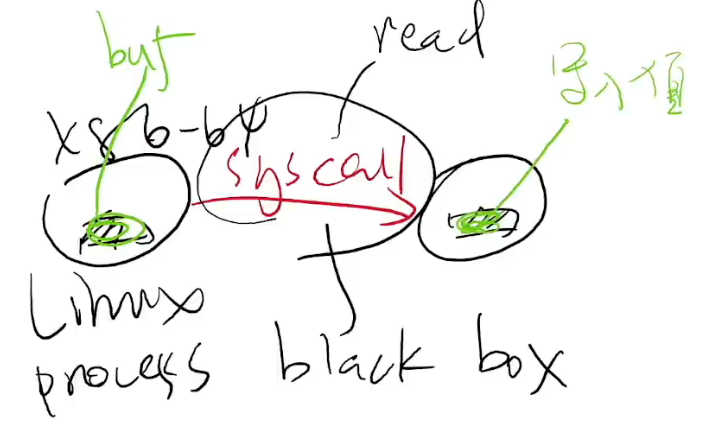 buf
read
写入值
x86-64
syscall
Linux
process
black box